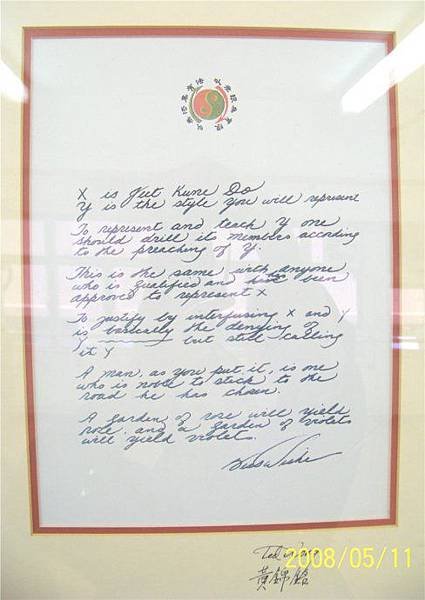 X is Jeet Kune Do
Y is the style you will represent
To represent and teach Y one
should drill its members according
to the preaching of Y.
This is the same with anyone
who is qualified and has been
approved to represent X
To justify by interfusing X and Y
is basically the denying of
Y ——— but still calling
it Y
A man, as you put it, is one
who is noble to stick to the
road he has chosen.
A garden of rose will yield
rose, and a garden of violets
will yield violets.
Ted Wong
2008/05/11
黃錦銘